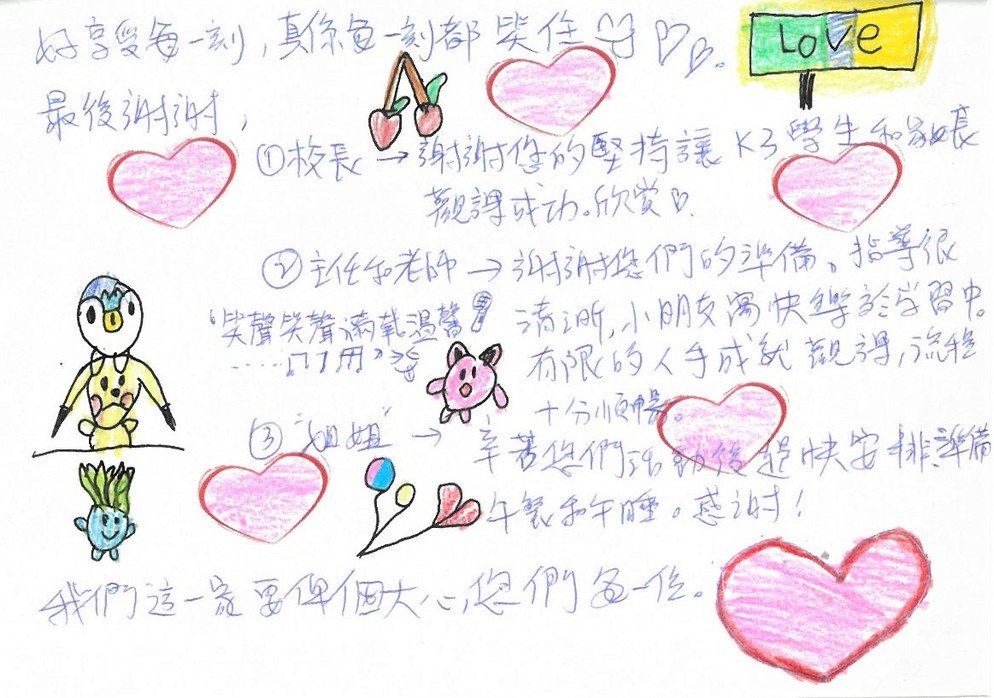 好享受每一刻，真係每一刻都笑住
LoVe
最後謝謝，
①校長→謝謝您的堅持讓K3學生和家長
觀課成功。欣賞
②主任和老師→謝謝您們的準備。指導很
清晰，小朋友寓快樂於學習中。
有限的人手成就觀課，流程
十分順暢。
"笑聲笑聲滿載溫馨
③"姐姐"→辛苦您們活動後趕快安排、準備
午餐和午睡。感謝！
我們這一家要俾個大心您們每一位。